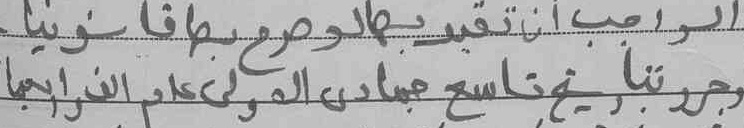 الواجب أن تقيد بها لوصرح بها قانونيا.
وحرر بتاريخ تاسع جمادى الاولى عام الف واربعما